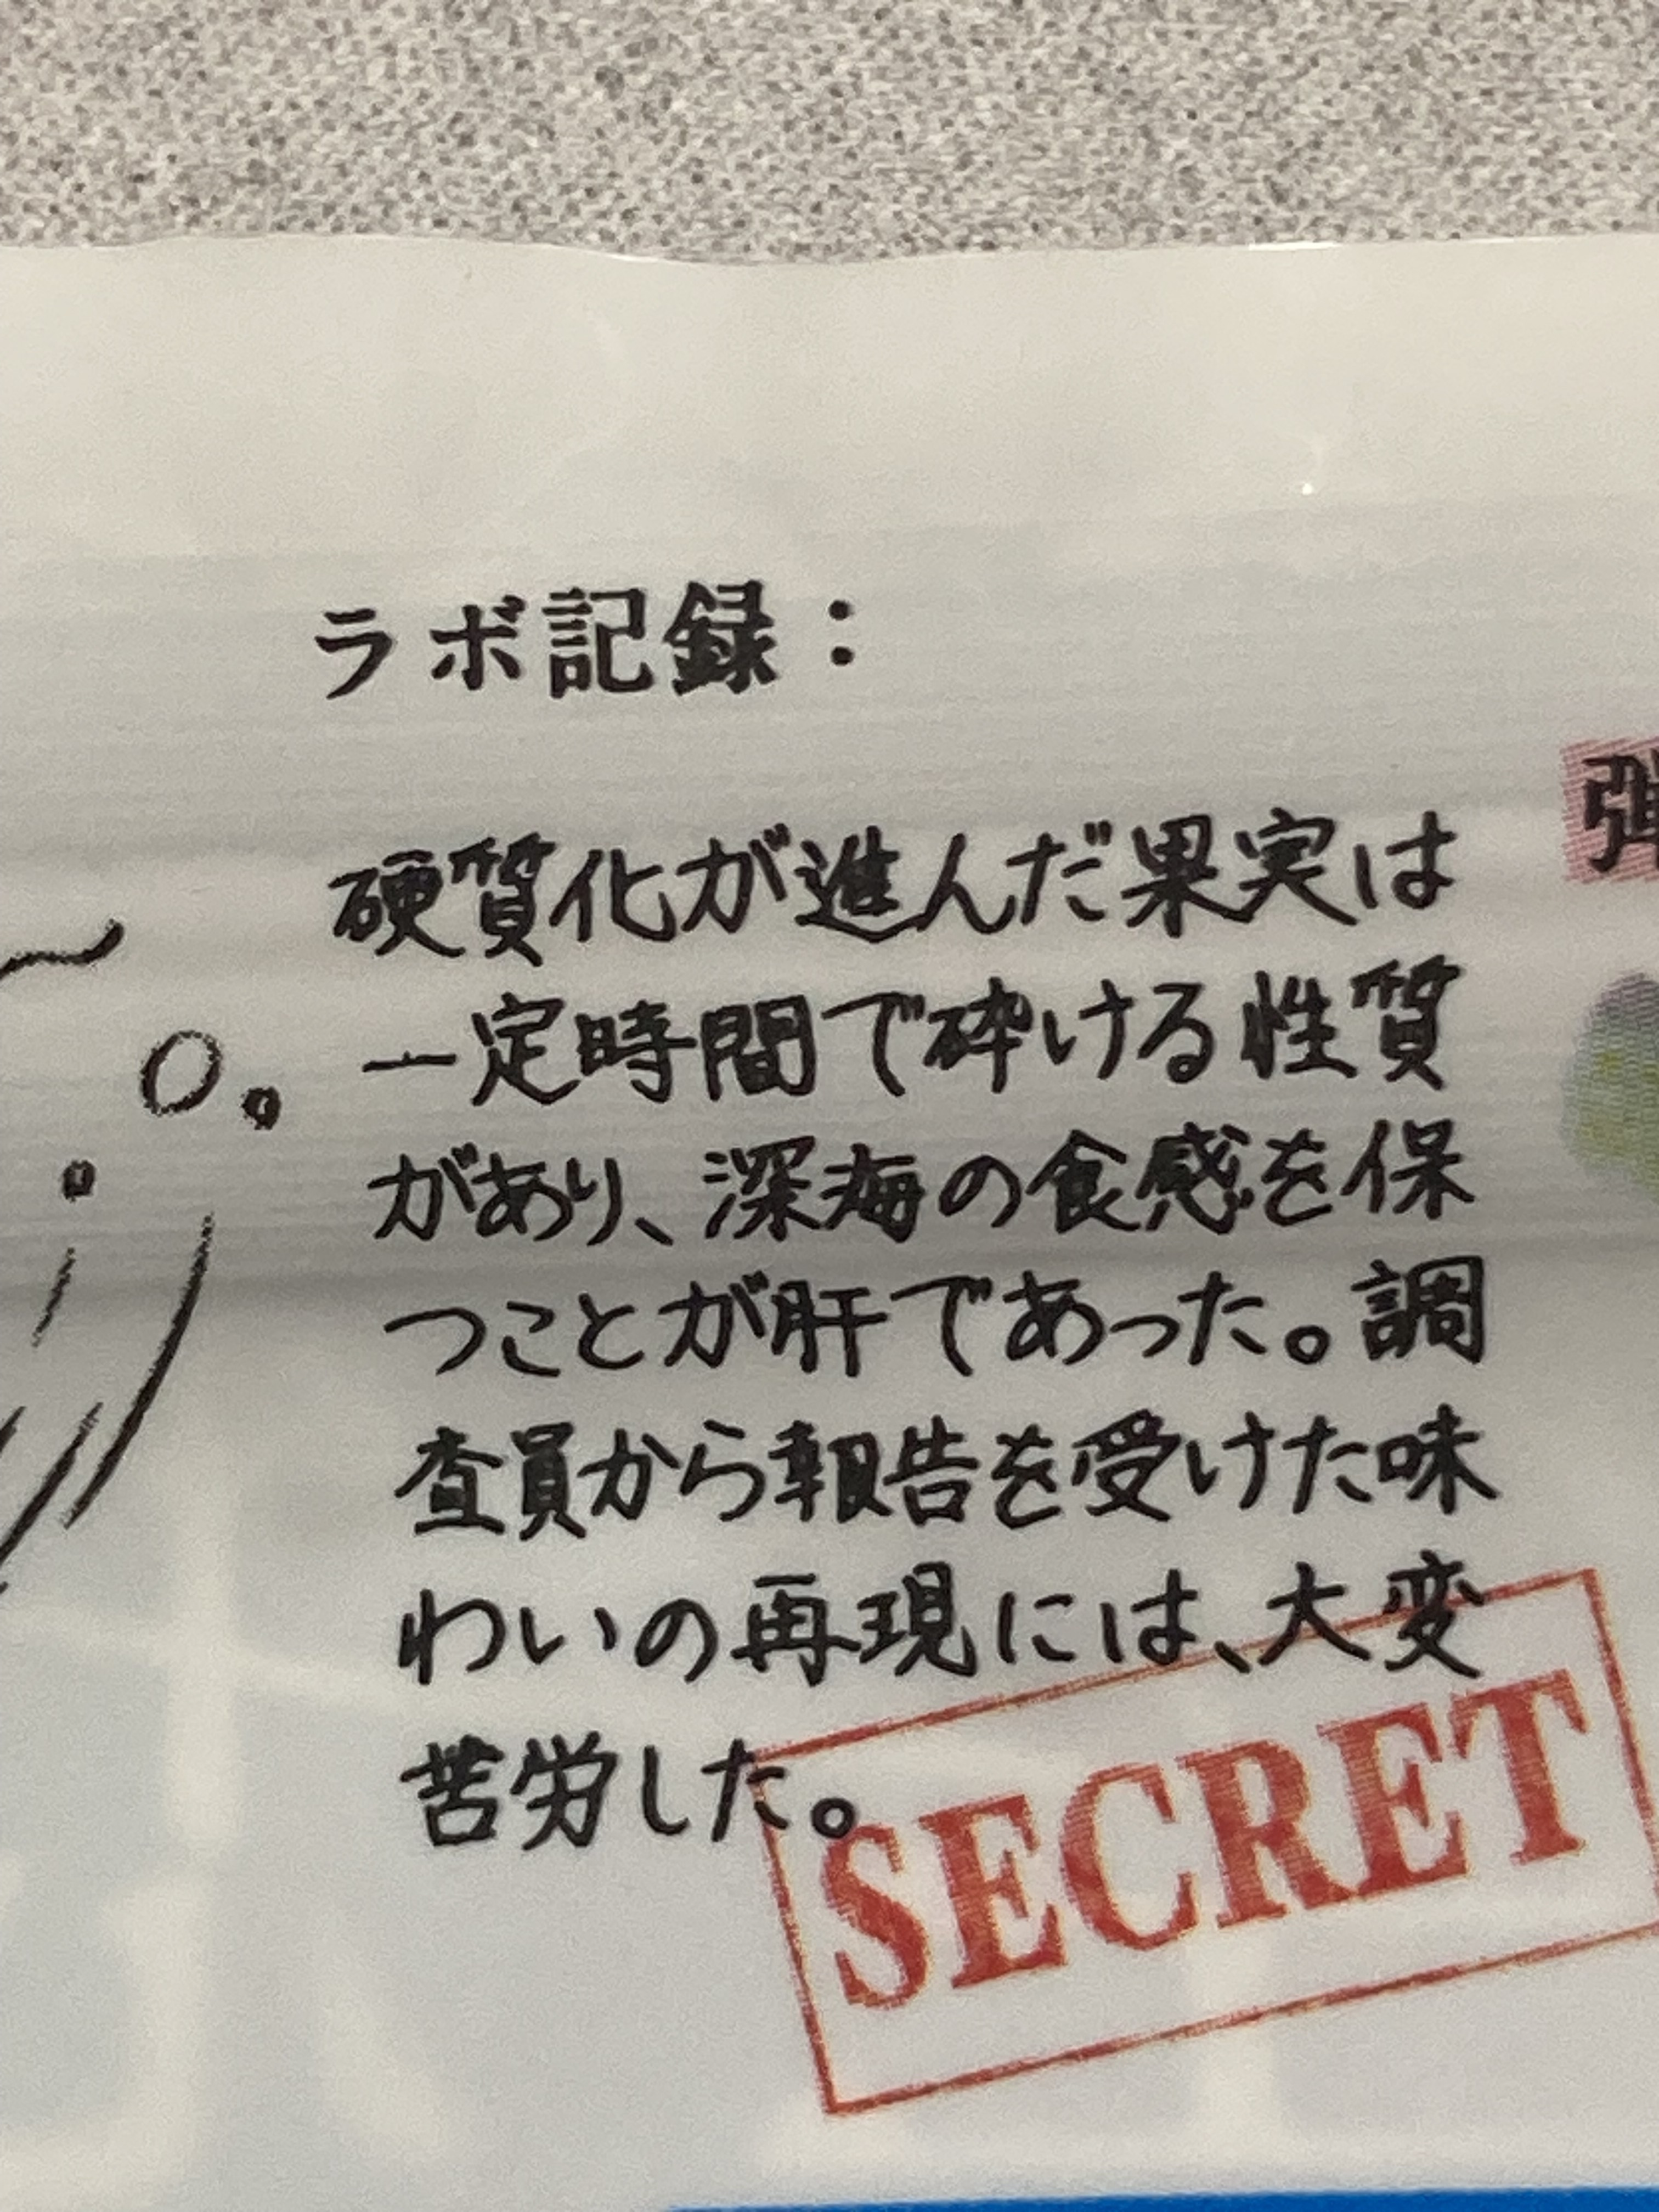 ラボ記録：
硬質化が進んだ果実は
一定時間で砕ける性質
があり、深海の食感を保
つことが肝であった。調
査員から報告を受けた味
わいの再現には、大変
苦労した。
SECRET
弾